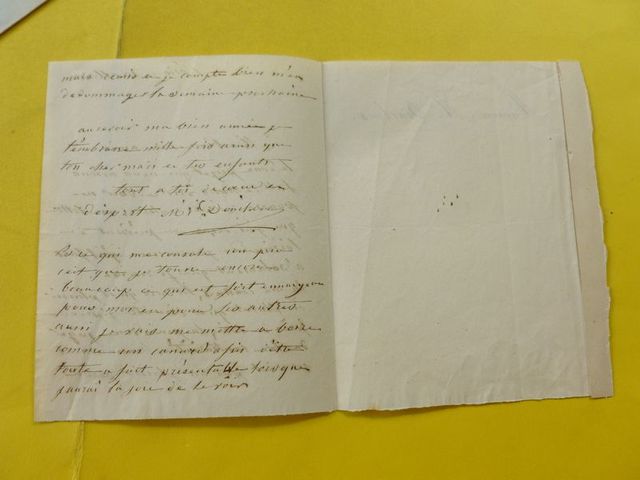 mais remis et je compte bien m'en
dedommager la semaine prochaine
au revoir ma bien aimée je
t'embrasse mille fois ainsi que
ton cher mari et tes enfants
tout a toi de cœur et
d'esprit
Et ce qui me console un peu
c'est que je tousse encore
beaucoup ce qui est fort ennuyeux
pour moi et pour les autres
aussi je vais me mettre a boire
comme un canard afin d'être
toute a fait présentable lorsque
j'aurai la joie de te voir